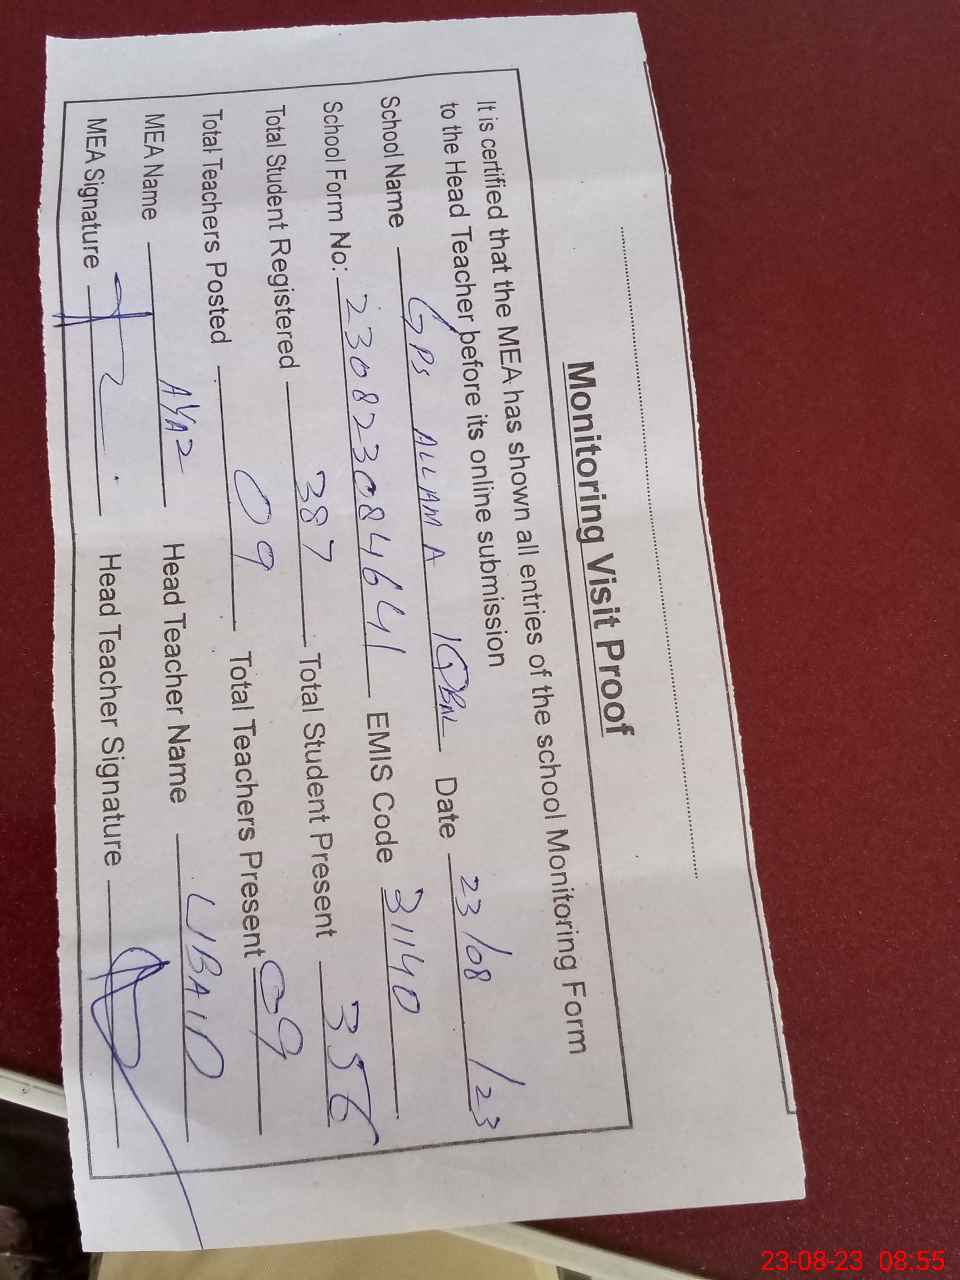 Monitoring Visit Proof
It is certified that the MEA has shown all entries of the school Monitoring Form
to the Head Teacher before its online submission
School Name GPS ALLAMA IQBAL Date 23/08/23
School Form No: 23082308464 EMIS Code 31140
Total Student Registered 387 Total Student Present 356
Total Teachers Posted 09 Total Teachers Present 09
MEA Name AYAZ Head Teacher Name UBAID
MEA Signature Head Teacher Signature
23-08-23 08:55